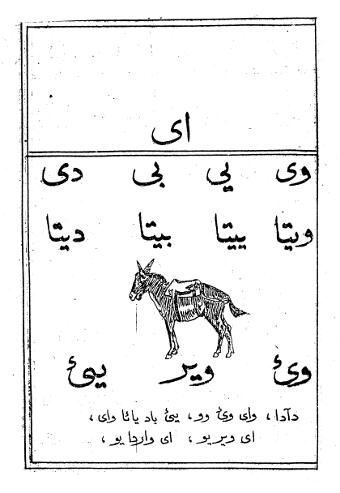 ای
وی یی بی دی
ویتا ییتا بیتا دیتا
وئ ویر یئ
دآدا، وای وئ وو، یئ باد یاتا وای،
ای ویر یو، ای وارجا یو،